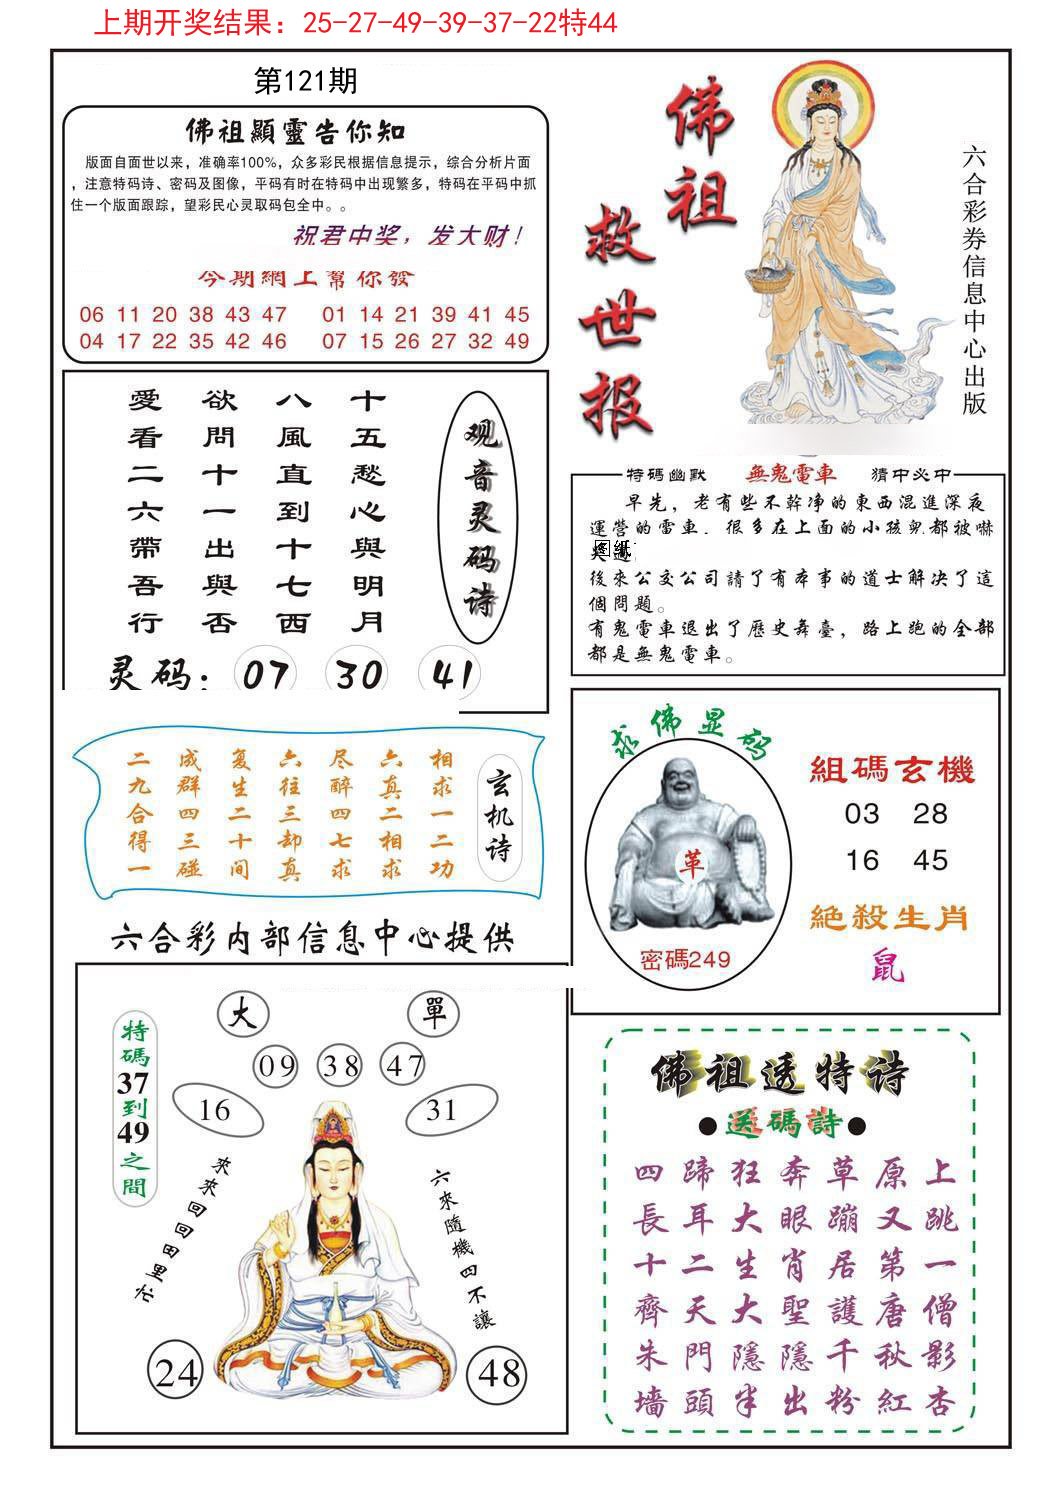 上期开奖结果：25-27-49-39-37-22特44
第121期
佛祖顯靈告你知
版面自面世以来，准确率100%，众多彩民根据信息提示，综合分析片面
，注意特码诗、密码及图像，平码有时在特码中出现繁多，特码在平码中抓
住一个版面跟踪，望彩民心灵取码包全中。。
祝君中奖，发大财！
今期網上幫你發
06 11 20 38 43 47 01 14 21 39 41 45
04 17 22 35 42 46 07 15 26 27 32 49
佛祖
救世报
六合彩券信息中心出版
观音灵码诗
十五愁心與明月
八風直到十七西
欲問十一出與否
愛看二六帶吾行
灵码：07 30 41
特碼幽默 無鬼電車 猜中必中
早先，老有些不幹净的東西混進深夜
運營的電車，很多在上面的小孩兒都被嚇
图纸
後來公交公司請了有本事的道士解决了這
個問題。
有鬼電車退出了歷史舞臺，路上跑的全部
都是無鬼電車。
玄机诗
相求一二功
六真二相求
尽醉四七求
六往三却真
复生二十间
成群四三碰
二九合得一
求佛显码
革
密碼249
組碼玄機
03 28
16 45
絕殺生肖
鼠
六合彩内部信息中心提供
特碼37到49之間
大 單
09 38 47
16 31
來來回回田里忙
六來隨機四不讓
24 48
佛祖透特诗
●送碼詩●
四蹄狂奔草原上
長耳大眼蹦又跳
十二生肖居第一
齊天大聖護唐僧
朱門隱隱千秋影
墙頭半出粉紅杏